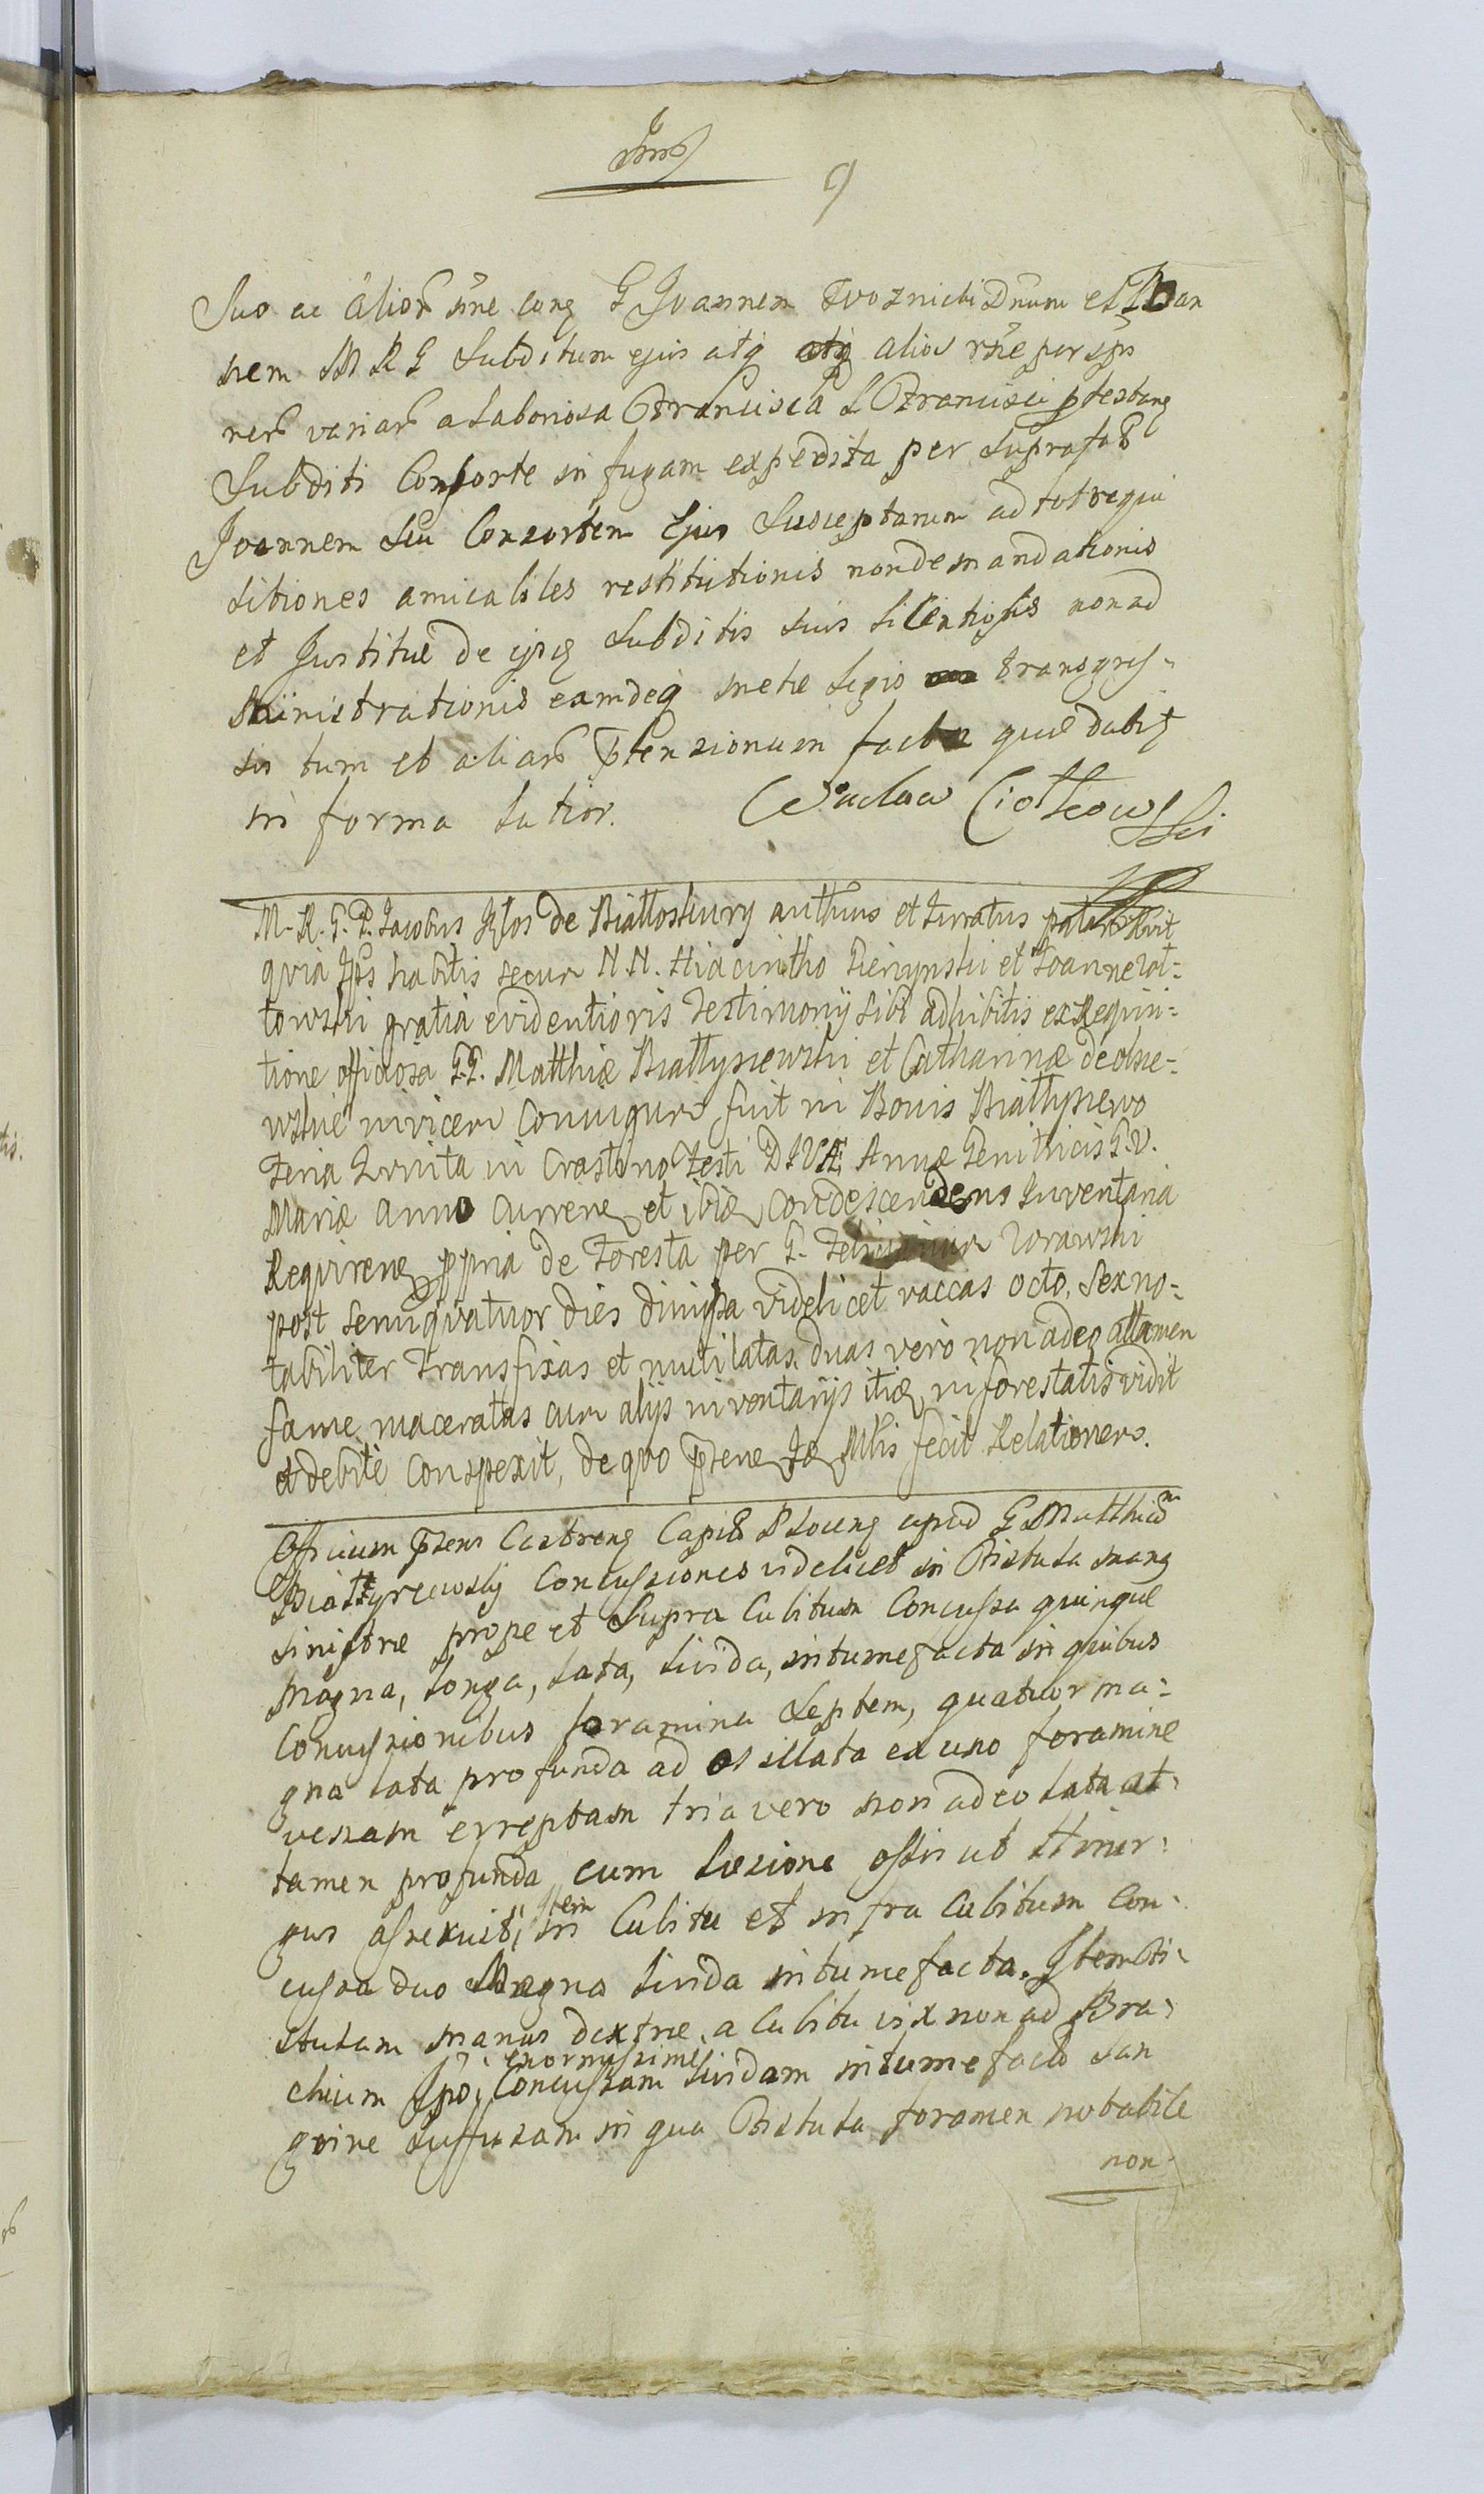 9
Suo ac alior sine cong G Joannem Dnum et Joan
nem M R G Subditum ejus atq alios rne per ips
rer variar a Laboriosa Francisca L Francisci ptestang
Subditi Consorte in fugam expedita per Suprafat
Joannem seu Consortem Ejus Susceptarum ad tot requi
sitiones amicabiles restitutionis non demandationis
et Justitiæ de ipsis Subditis suis licentiosis non ad
ministrationis eamdeq metæ legis transgres-
sis tum et aliar ptensionum facta quæ dabit
in forma latior. Wacław Ciołkowski
M. R. G. P. Jacobus Kłos de Białłoskury authus et Juratus palam
quia Ips habitis secum N. N. Hiacintho Pienynski et Joanne Zot=
towski gratia evidentioris Testimonij sibi adhibitis ex Requisi=
tione officiosa G.G. Matthiæ Białłyniewski et Catharinæ de olsze=
wskie invicem Coniugum fuit in Bonis Białłyniewo
Feria Quinta in Crastino Festi DIVÆ Annæ Genitricis B.V.
Mariæ anno Curren et ibiđ condescendens Inventaria
Requiren ppria de Foresta per G. Zorawski
post semiquatuor dies dimissa videlicet vaccas octo, sex no=
tabiliter Transfixas et mutilatas, duas vero non adeo attamen
fame maceratas cum alijs inventarijs itiđ inforestatis vidit
et debite Conspexit, de quo psens Jđ Mlis fecit Relationem.
Officium psens Castrens Capit Plocens apud G Matthiam
Białłyniewsky Concussiones videlicet in Fistula manus
sinistræ prope et Supra Cubitum Concussa quinque
magna, longa, lata, livida, intumefacta in quibus
Concussionibus foramina septem, quatuor ma=
gna lata profunda ad os illata ex uno foramine
venam erreptam tria vero non adeo lata at=
tamen profunda cum læsione ossis ut Hirur=
gus asseruit, Item in Cubitu et infra Cubitum Con=
cussa duo Magna livida intumefacta. Item Fi=
stulam manus dextræ a Cubitu vix non ad Bra=
chium Ipo, enormissime Concussam lividam intumefacta san
guine suffusam in qua Fistula foramen notabile
non